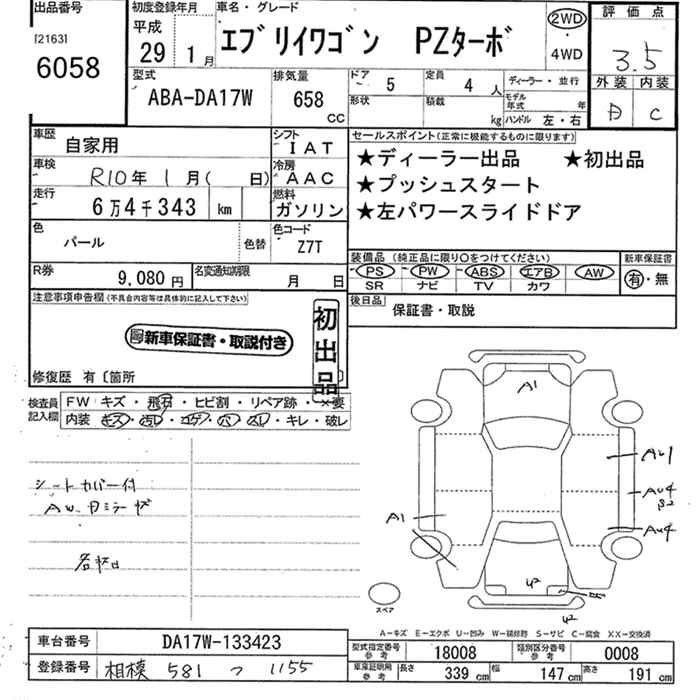 出品番号
[2163]
6058
初度登録年月
平成
29年 1月
車名・グレード
エブリイワゴン PZターボ
2WD
・
4WD
評価点
3.5
外装 内装
C
型式
ABA-DA17W
排気量
658
CC
ドア
5
定員
4人
形状
積載
kg
ディーラー・並行
モデル年式 年
ハンドル 左・右
車歴
自家用
シフト
IAT
車検
R10年 1月( 日)
冷房
AAC
走行
6万4千343 km
燃料
ガソリン
色
パール
色替
色コード
Z7T
R券
9,080円
名変通知期限
月 日
セールスポイント(正常に機能するものに限ります)
★ディーラー出品 ★初出品
★プッシュスタート
★左パワースライドドア
装備品(純正品に限り○をつけてください)
PS PW ABS エアB AW
SR ナビ TV カワ
新車保証書
有・無
後日品
保証書・取説
注意事項申告欄(不具合内容等は具体的に記入して下さい)
新車保証書・取説付き
初出品
修復歴 有〔箇所 〕
検査員記入欄
FW キズ・飛石・ヒビ割・リペア跡・×要
内装 キズ・汚れ・コゲ・穴・スレ・キレ・破レ
シートカバー付
A1
A1
AU1
AU4
B2
AU4
U2
U2
スペア
A-キズ E-エクボ U-凹み W-補修跡 S-サビ C-腐食 XX-交換済
車台番号
DA17W-133423
登録番号
相模 581 つ 1155
型式指定番号
参考
18008
類別区分番号
参考
0008
車庫証明用
参考
長さ
339cm
幅
147cm
高さ
191cm